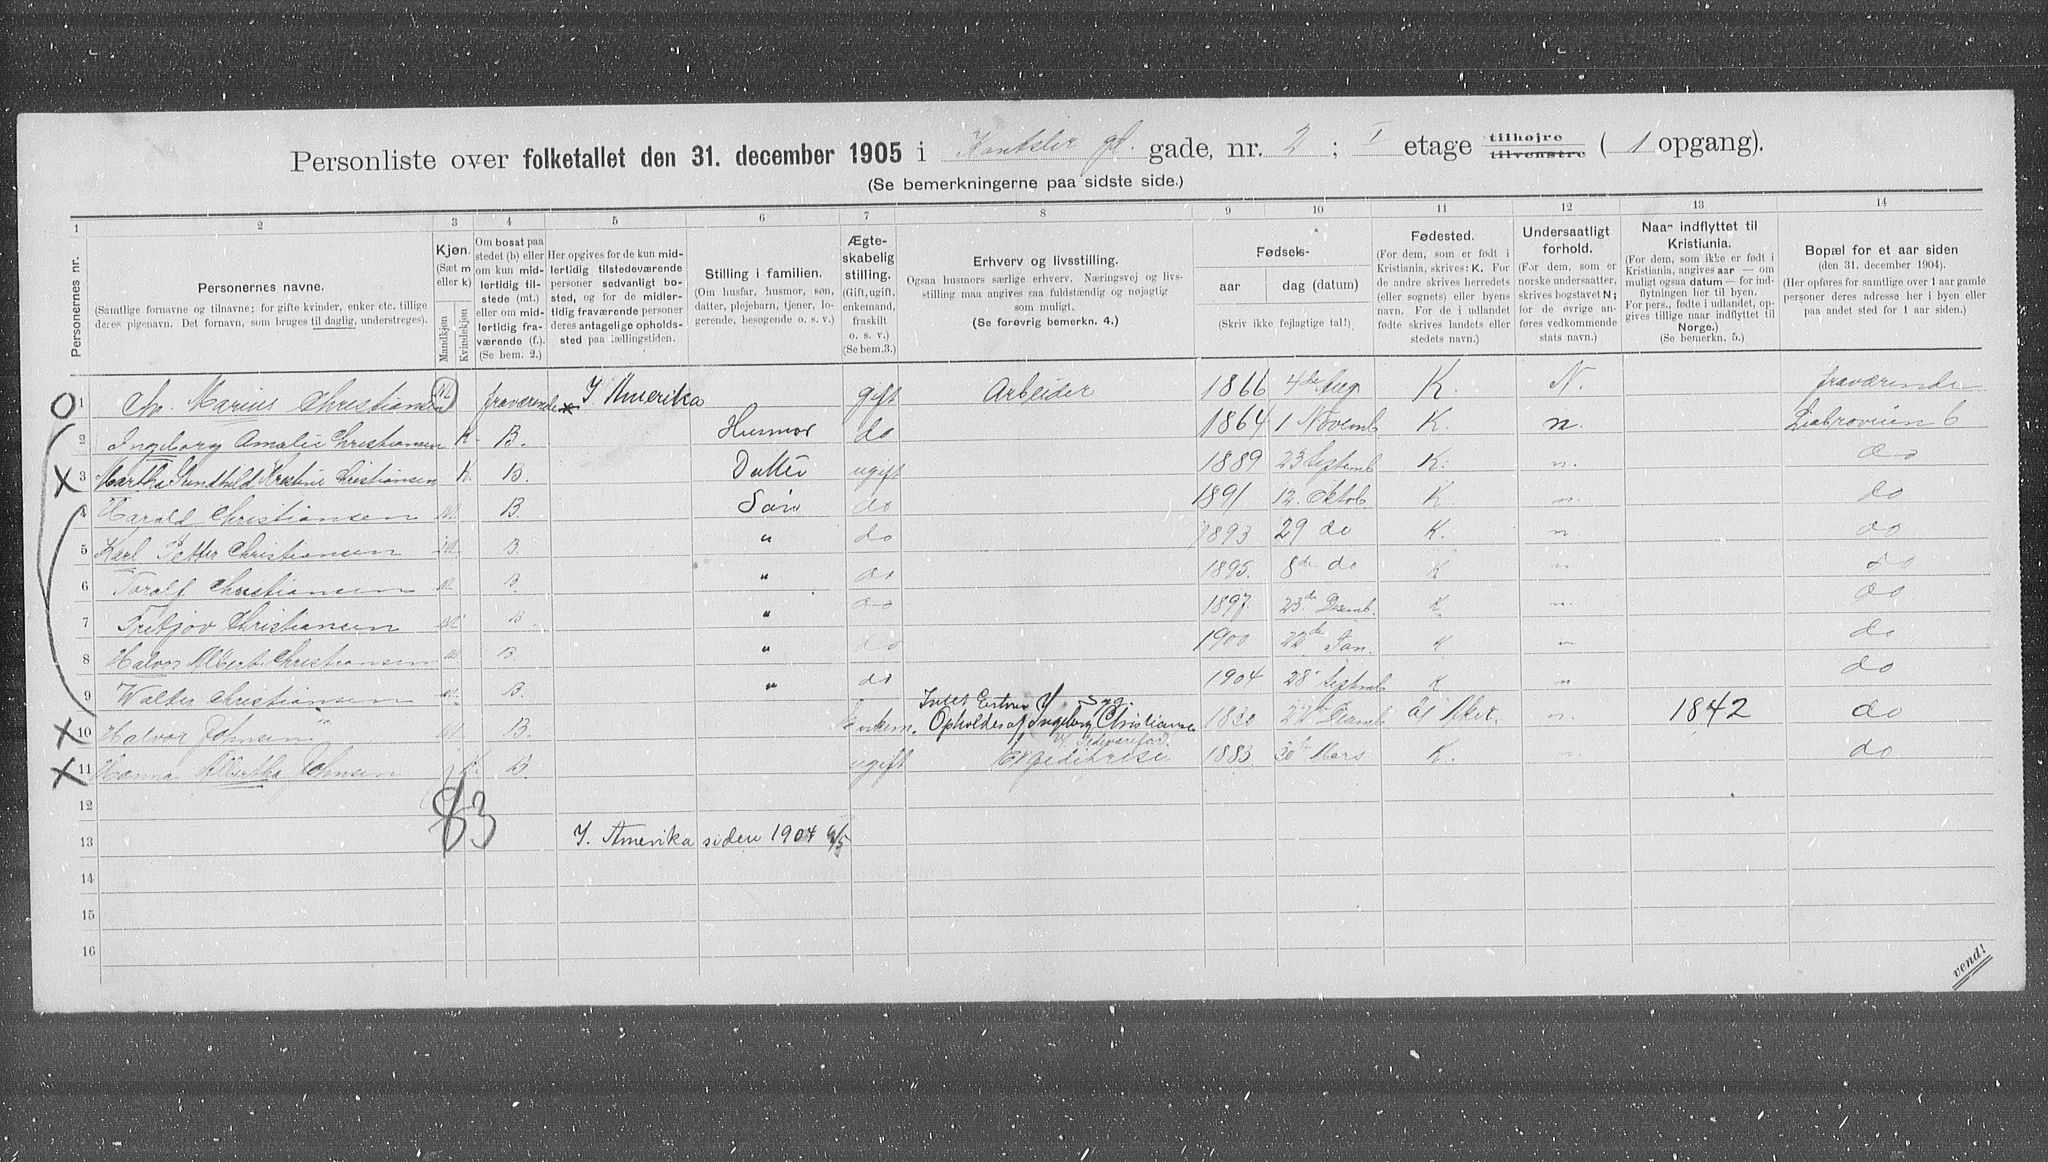 Personliste over folketallet den 31. december 1905 i Kantslergd. gade, nr. 2; I etage tilhøjre tilvenstre (1 opgang).
(Se bemerkningerne paa sidste side.)
1 2 3 4 5 6 7 8 9 10 11 12 13 14
Personernes nr.
Personernes navne.
(Samtlige fornavne og tilnavne; for gifte kvinder, enker etc. tillige deres pigenavn. Det fornavn, som bruges til daglig, understreges).
Kjøn.
(Sæt m eller k)
Mandkjøn
Kvindekjøn
Om bosat paa stedet (b) eller om kun midlertidig tilstede (mt.) eller om midlertidig fraværende (f.). (Se bem. 2.)
Her opgives for de kun midlertidig tilstedeværende personer sedvanligt bosted, og for de midlertidig fraværende personer deres antagelige opholdssted paa tællingstiden.
Stilling i familien.
(Om husfar, husmor, søn, datter, plejebarn, tjener, logerende, besøgende o. s. v.)
Ægteskabelig stilling.
(Gift, ugift, enkemand, fraskilt o. s. v.) (Se bem. 3.)
Erhverv og livsstilling.
Ogsaa husmors særlige erhverv. Næringsvej og livsstilling maa angives saa fuldstændig og nøjagtig som muligt.
(Se forøvrig bemerkn. 4.)
Fødsels-
aar dag (datum)
(Skriv ikke fejlagtige tal!)
Fødested.
(For dem, som er født i Kristiania, skrives: K. For de andre skrives herredets (eller sognets) eller byens navn. For de i udlandet fødte skrives landets eller stedets navn.)
Undersaatligt forhold.
(For dem, som er norske undersaatter, skrives bogstavet N; for de øvrige anføres vedkommende stats navn.)
Naar indflyttet til Kristiania.
(For dem, som ikke er født i Kristiania, angives aar — om muligt ogsaa datum — for indflytningen her til byen. For pers., fødte i udlandet, opgives tillige naar indflyttet til Norge.)
(Se bemerkn. 5.)
Bopæl for et aar siden
(den 31. december 1904).
(Her opføres for samtlige over 1 aar gamle personer deres adresse her i byen eller paa andet sted for 1 aar siden.)
1 Chr. Marius Christiansen M fraværende I Amerika gift Arbeider 1866 4de Aug K. N. fraværende
2 Ingeborg Amalie Christiansen K. B. Husmor do 1864 1 Novemb K. n. Liabroveien 6
3 Martha Gundhild Kristine Christiansen K. B. Datter ugift 1889 23 Septemb K. n. do
4 Harald Christiansen M B. Søn do 1891 12. Oktob K n. do
5 Karl Petter Christiansen M B. " do 1893 29 do K. n. do
6 Toralf Christiansen M B. " do 1895. 8de do K n. do
7 Fritjov Christiansen M B. " do 1897. 23de Desemb. K n. do
8 Halvor Albert Christiansen M B. " do 1900 22de Jan. K n do
9 Walter Christiansen M. B. " do 1904 28 Septemb K n do
10 Halvor Johnsen M B. Enkem. Intet Erhverv Syg. Opholdes af Ingeborg Christiansen 1820 22de Desemb Ø Aker. n. 1842 do
11 Hanna Albertha Johnsen K. B. ugift Expeditrise 1883 30te Mars K. n. do
12
83
13 I. Amerika siden 1904 6/5
14
15
16
vend!